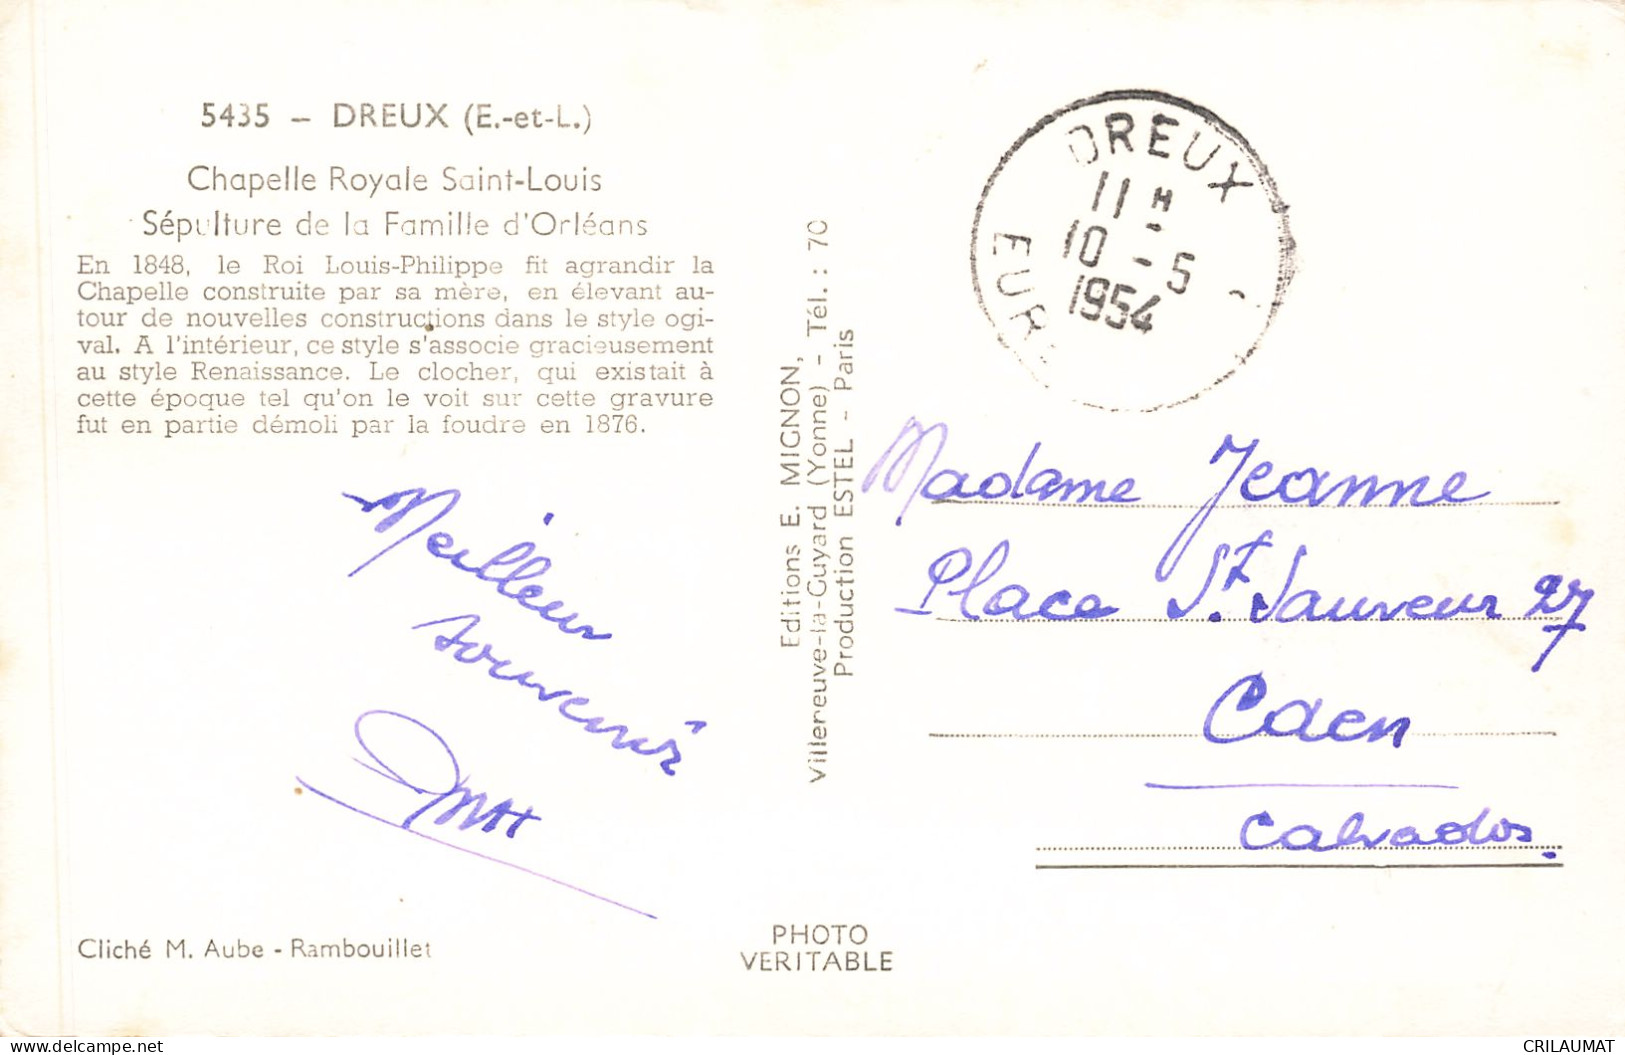 5435 – DREUX (E.-et-L.)
Chapelle Royale Saint-Louis
Sépulture de la Famille d'Orléans
En 1848, le Roi Louis-Philippe fit agrandir la
Chapelle construite par sa mère, en élevant au-
tour de nouvelles constructions dans le style ogi-
val. A l'intérieur, ce style s'associe gracieusement
au style Renaissance. Le clocher, qui existait à
cette époque tel qu'on le voit sur cette gravure
fut en partie démoli par la foudre en 1876.
Meilleur
souvenir
Cliché M. Aube - Rambouillet
Editions E. MIGNON,
Villeneuve-la-Guyard (Yonne) - Tél. : 70
Production ESTEL - Paris
PHOTO
VERITABLE
DREUX
11 H
10 - 5
1954
EURE
Madame Jeanne
Place St. Sauveur 27
Caen
Calvados.
CRILAUMAT
delcampe.net